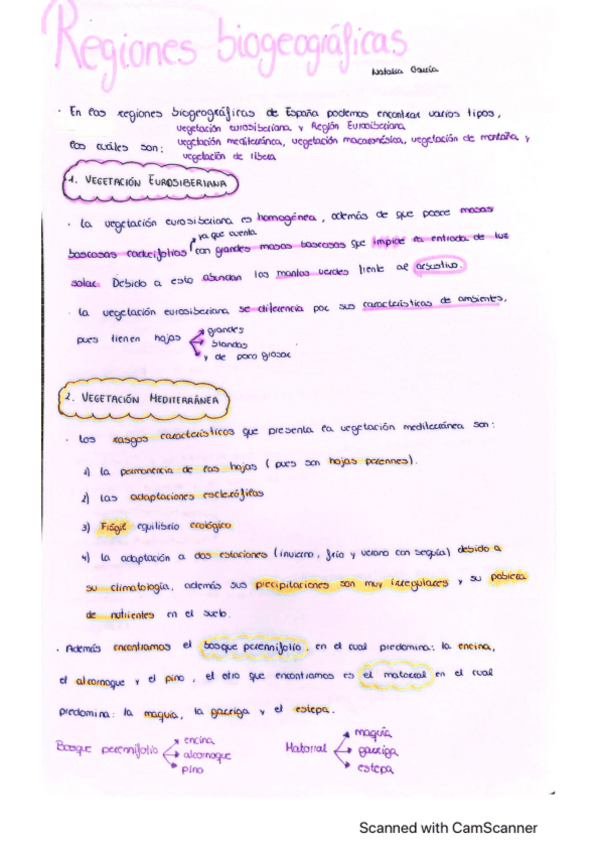 Regiones biogeográficas
Natalia García
· En las regiones biogeográficas de España podemos encontrar varios tipos,
vegetación eurosiberiana y Región Eurosiberiana
los cuáles son: vegetación mediterránea, vegetación macaronésica, vegetación de montaña y
vegetación de ribera
1. VEGETACIÓN EUROSIBERIANA
· La vegetación eurosiberiana es homogénea, además de que posee masas
ya que cuenta
boscosas caducifolias con grandes masas boscosas que impide la entrada de luz
solar. Debido a esto abundan los mantos verdes frente al arbustivo.
· La vegetación eurosiberiana se diferencia por sus características de ambientes,
pues tienen hojas
grandes
blandas
y de poco grosor
2. VEGETACIÓN MEDITERRÁNEA
· Los rasgos característicos que presenta la vegetación mediterránea son:
1) La permanencia de las hojas (pues son hojas perennes).
2) Las adaptaciones esclerófilas
3) Frágil equilibrio ecológico
4) La adaptación a dos estaciones (invierno, frío y verano con sequía) debido a
su climatología, además sus precipitaciones son muy irregulares y su pobreza
de nutrientes en el suelo.
· Además encontramos el bosque perennifolio, en el cual predomina: la encina,
el alcornoque y el pino, el otro que encontramos es el matorral en el cual
predomina: la maquia, la garriga y el estepa.
Bosque perennifolio
encina
alcornoque
pino
Matorral
maquia
garriga
estepa
Scanned with CamScanner